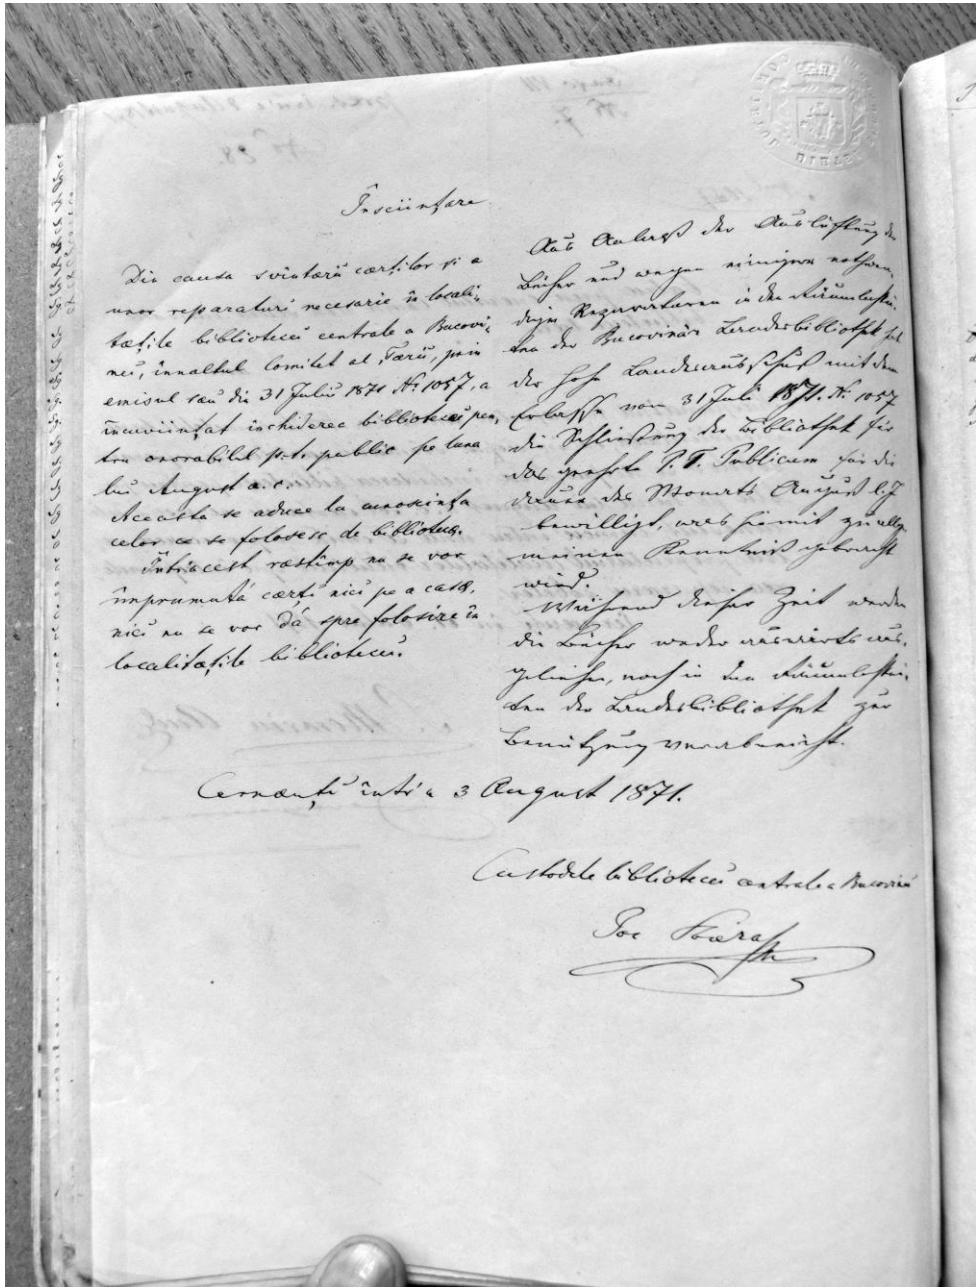 Însciințare
Din causa svintărei cærților și a
unor reparaturi necesarie în locali-
tæțile bibliotecei centrale a Bucovi-
nei, înnaltul Comitet al Tærii, prin
emisul sæu din 31 Juliu 1871 Nr 1057, a
încuviințat închiderea bibliotecei pen-
tru onorabilul p.t. public pe luna
lui August a. c.
Aceasta se aduce la cunoscința
celor ce se folosesc de bibliotecă.
Întriacest ræstimp nu se vor
împrumuta cærți nici pe a casă,
nici nu se vor da spre folosire în
localitæțile bibliotecei.
Aus Anlaß der Auslüftung der
Bücher und wegen einiger nothwen-
digen Reparaturen in den Räumlichkei-
ten der Bucovinär Landesbibliothek hat
der hohe Landesausschuß mit dem
Erlasse vom 31 Juli 1871. Nr. 1057
die Schließung der Bibliothek für
das geehrte P. T. Publicum für die
Dauer des Monats August l. J
bewilligt, was hiemit zur allge-
meinen Kenntniß gebracht
wird.
Während dieser Zeit werden
die Bücher weder auswärts aus-
geliehen, noch in den Räumlichkei-
ten der Landesbibliothek zur
Benützung verabreicht.
Cernæuți întri'a 3 August 1871.
Custodele bibliotecei centrale a Bucovinei